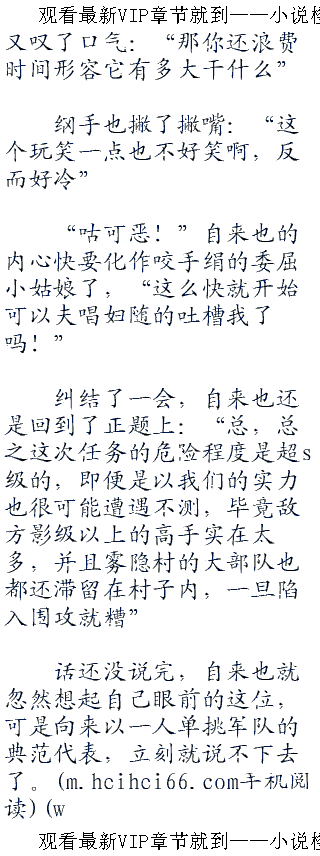 观看最新VIP章节就到——小说检
又叹了口气：“那你还浪费
时间形容它有多大干什么”
纲手也撇了撇嘴：“这
个玩笑一点也不好笑啊，反
而好冷”
“咕可恶！”自来也的
内心快要化作咬手绢的委屈
小姑娘了，“这么快就开始
可以夫唱妇随的吐槽我了
吗！”
纠结了一会，自来也还
是回到了正题上：“总，总
之这次任务的危险程度是超s
级的，即便是以我们的实力
也很可能遭遇不测，毕竟敌
方影级以上的高手实在太
多，并且雾隐村的大部队也
都还滞留在村子内，一旦陷
入围攻就糟”
话还没说完，自来也就
忽然想起自己眼前的这位，
可是向来以一人单挑军队的
典范代表，立刻就说不下去
了。(m.hcihci66.com手机阅
读)(w
观看最新VIP章节就到——小说检